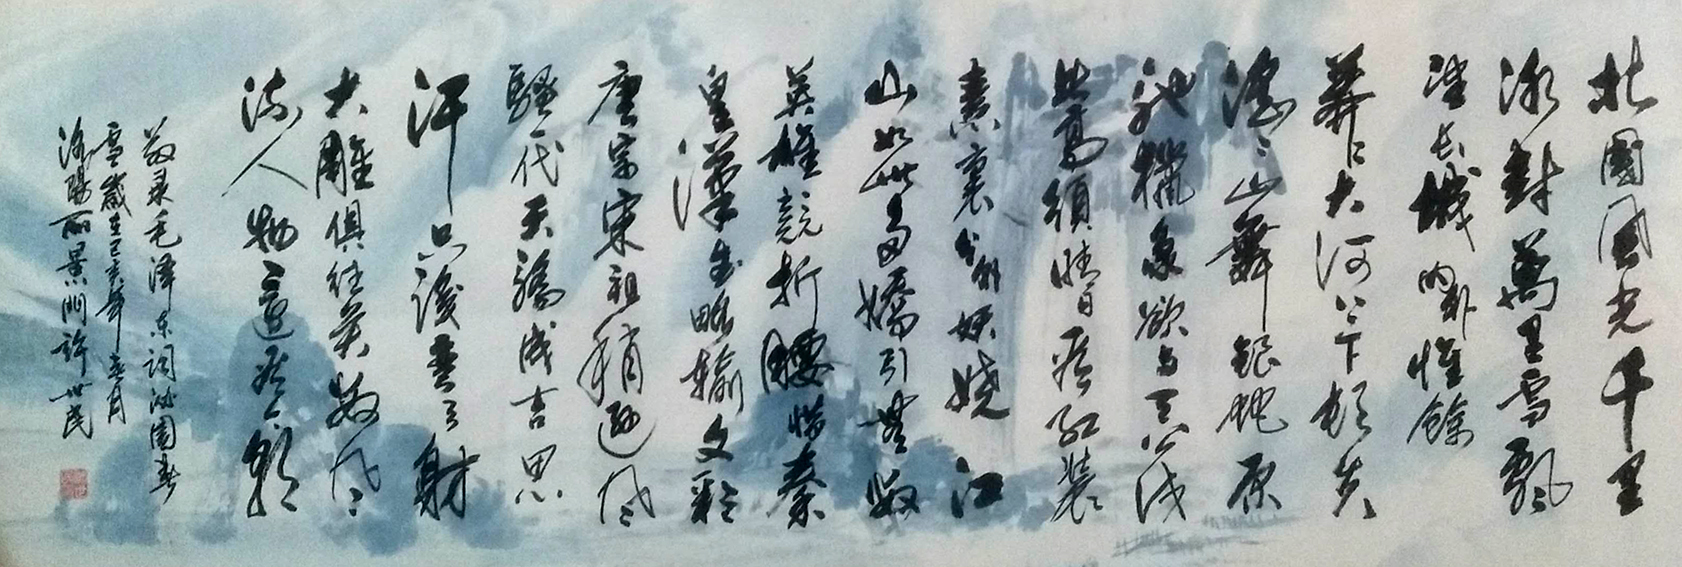 北國風光千里
冰封萬里雪飄
望长城內外惟餘
莽々大河上下頓失
滔々山舞銀蛇原
馳蠟象欲与天公试
比高須晴日看紅裝
素裹分外妖嬈江
山如此多嬌引無數
英雄競折腰惜秦
皇漢武略輸文彩
唐宗宋祖稍遜风
騷一代天驕成吉思
汗只識彎弓射
大雕俱往矣數风
流人物還看今朝
敬录毛泽东词沁園春
雪歲在己亥年月
洛陽丽景門許世民